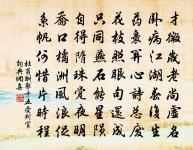 才微歲老尚虛名
卧病江湖春復生
藥裹關心詩總廢
花枝照眼句還成
只同燕石能星隕
自得隋珠覺夜明
喬口橘洲風浪促
系帆何惜片時程
杜甫酬郭十五受判官
詞典網集